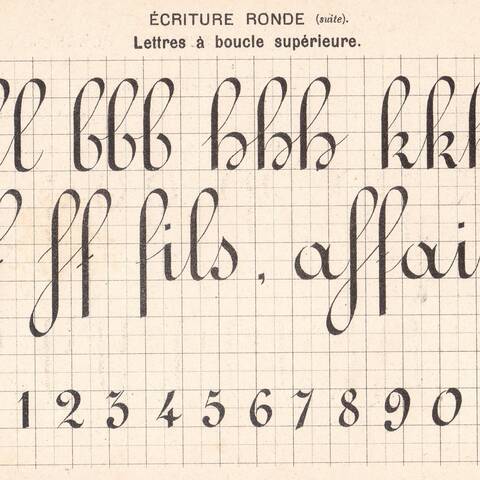 ÉCRITURE RONDE (suite).
Lettres à boucle supérieure.
ll bbb hhh kkk
f ff fils, affai
1 2 3 4 5 6 7 8 9 0